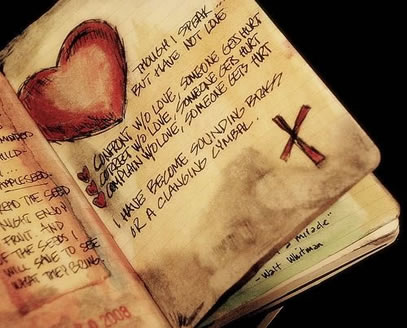 THOUGH I SPEAK...
BUT HAVE NOT LOVE
CONFRONT W/O LOVE, SOMEONE GETS HURT
CORRECT W/O LOVE, SOMEONE GETS HURT
COMPLAIN W/O LOVE, SOMEONE GETS HURT
I HAVE BECOME SOUNDING BRASS
OR A CLANGING CYMBAL.
CHILD.
APPLESEED.
THE SEED
MIGHT ENJOY
FRUIT AND
THE SEEDS I
WILL SAVE TO SEE
WHAT THEY BRING.
2008
a miracle"
-Walt Whitman